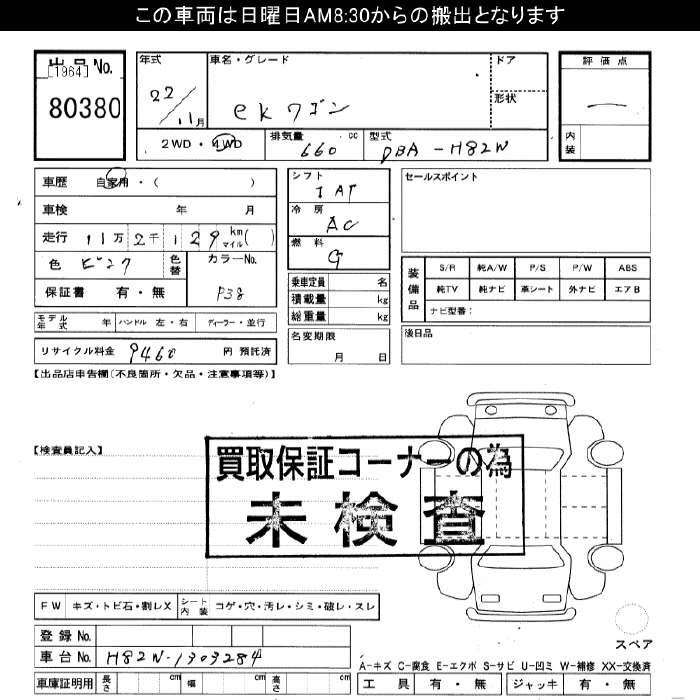 この車両は日曜日AM8:30からの搬出となります
出品No.
[1964]
80380
年式
22/11月
車名・グレード
ekワゴン
ドア
形状
評価点
内装
2WD・4WD
排気量
660 cc
型式
DBA-H82W
車歴 自家用・( )
車検 年 月
走行 11万2千129 km マイル( )
色 ピンク
色替
カラーNo.
P38
保証書 有・無
シフト
IAT
冷房
AC
燃料
G
乗車定員 名
積載量 kg
総重量 kg
名変期限
月 日
セールスポイント
装備品
S/R 純A/W P/S P/W ABS
純TV 純ナビ 革シート 外ナビ エアB
ナビ型番:
後日品
モデル年式 年 ハンドル 左・右 ディーラー・並行
リサイクル料金 9460 円 預託済
【出品店申告欄(不良箇所・欠品・注意事項等)】
【検査員記入】
買取保証コーナーの為
未検査
FW キズ・トビ石・割レX シート内装 コゲ・穴・汚レ・シミ・破レ・スレ
登録No.
車台No. H82W-1303284
スペア
A-キズ C-腐食 E-エクボ S-サビ U-凹ミ W-補修 XX-交換済
車庫証明用 長さ cm 幅 cm 高さ cm
工具 有・無 ジャッキ 有・無